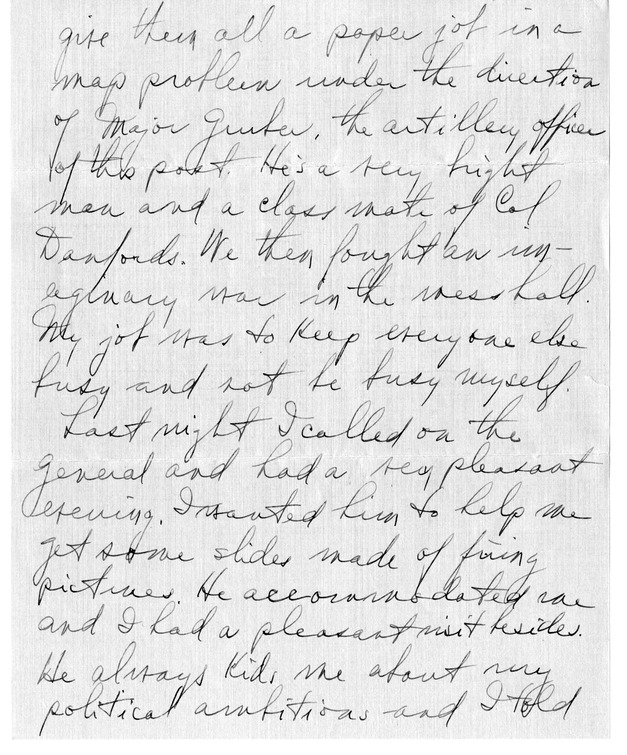 give them all a paper job in a
map problem under the direction
of Major Gruber, the artillery officer
of this post. He's a very bright
man and a class mate of Col
Danfords. We then fought an im-
aginary war in the mess hall.
My job was to keep everyone else
busy and not be busy myself.
Last night I called on the
general and had a very pleasant
evening. I wanted him to help me
get some slides made of firing
pictures. He accommodated me
and I had a pleasant visit besides.
He always kids me about my
political ambitions and I told